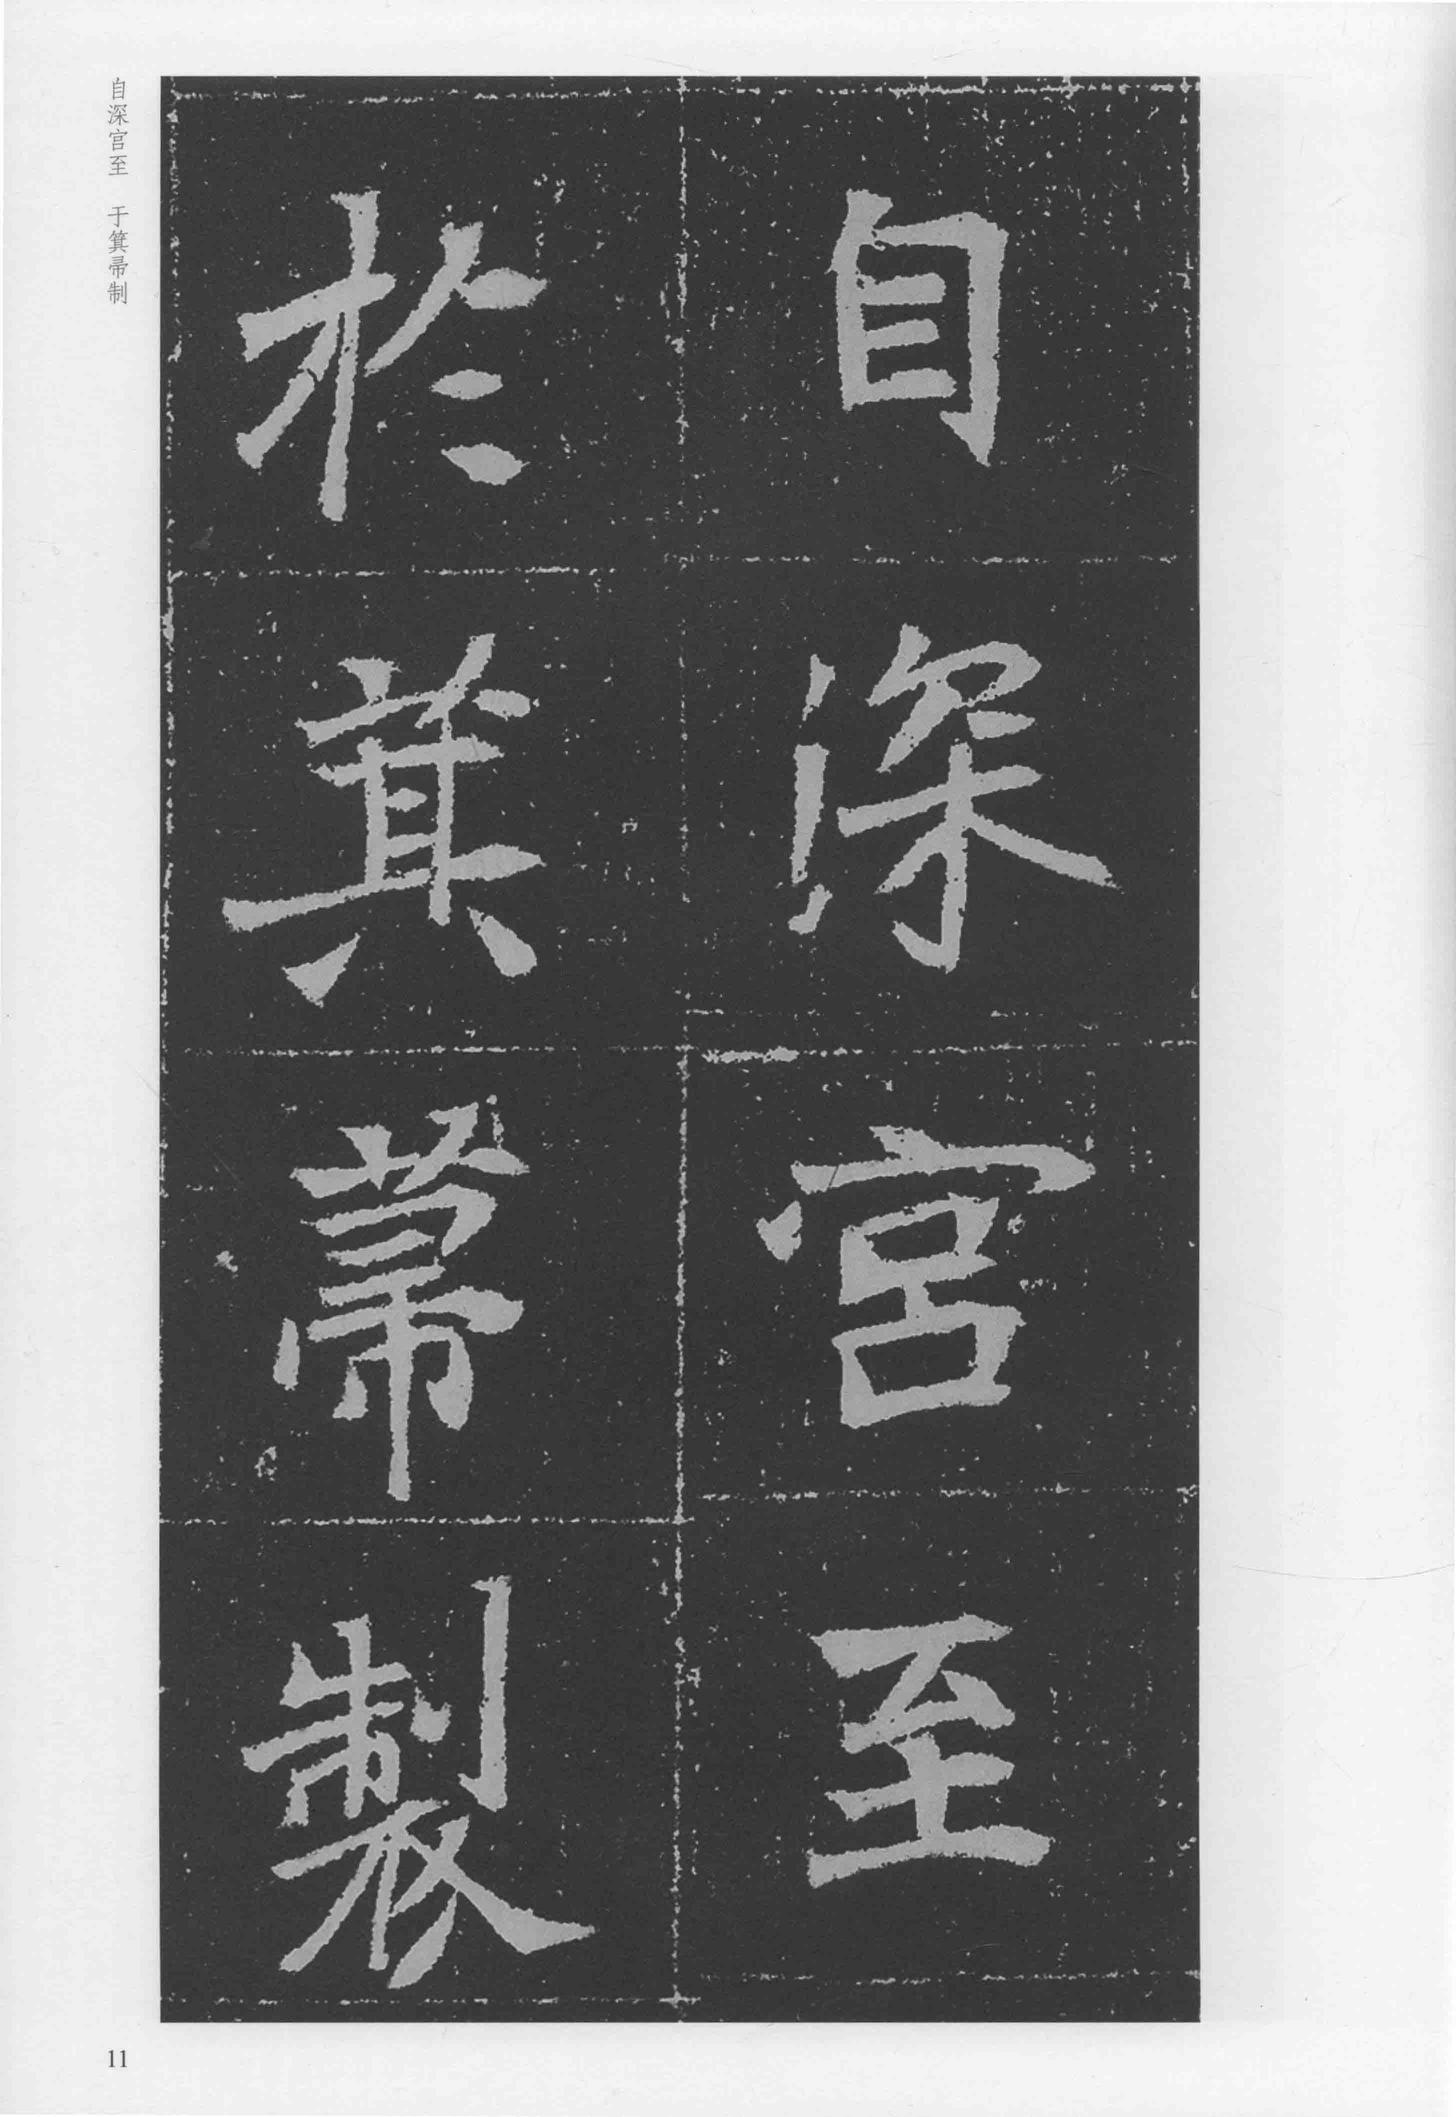 自深宮至
於箕帚製
自深宫至 于箕帚制
11